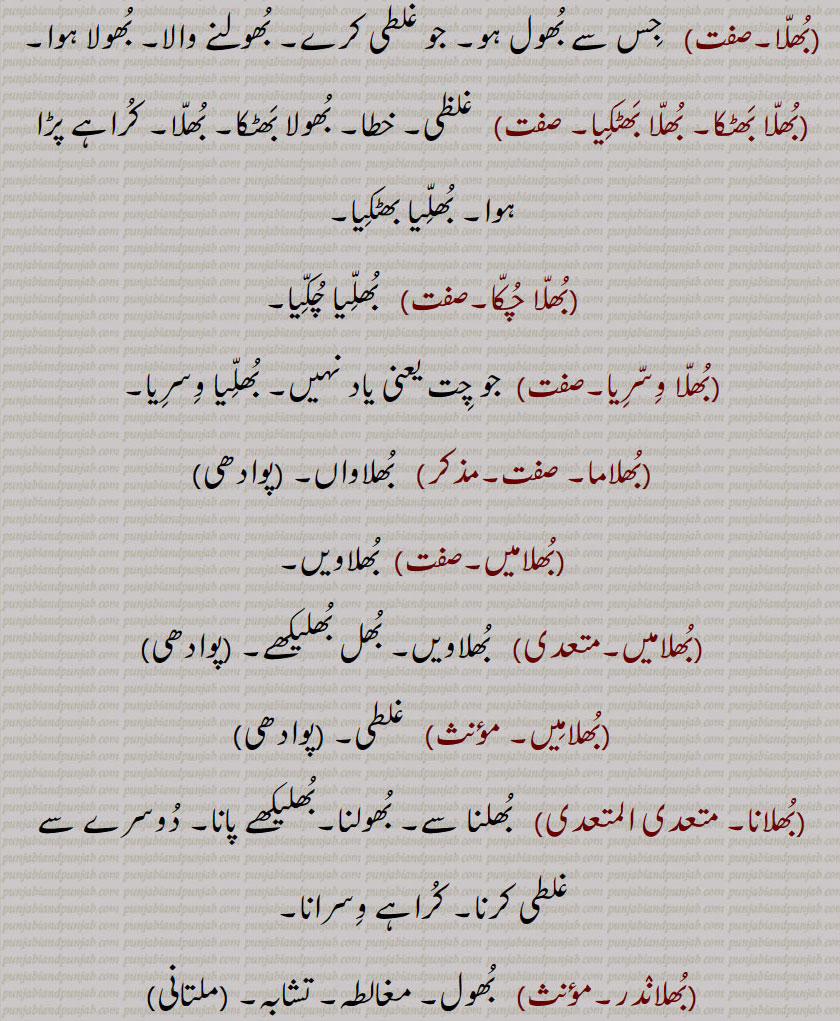 (بُھلّا۔صفت) جِس سے بُھول ہو۔ جو غلطی کرے۔ بُھولنے والا۔ بُھولا ہوا۔
(بُھلّا بَھٹکا۔ بُھلّا بَھٹکِیا۔ صفت) غلطی۔ خطا۔ بُھولا بَھٹکا۔ بُھلّا۔ کُراہے پڑا
ہوا۔ بُھلِّیا بھٹکِیا۔
(بُھلّا چُکّا۔صفت) بُھلِّیا چُکِّیا۔
(بُھلّا وِسّرِیا۔صفت) جو چِت یعنی یاد نہیں۔ بُھلِّیا وِسرِیا۔
(بُھلاما۔ صفت۔مذکر) بُھلاواں۔ (پوادھی)
(بُھلامیں۔صفت) بُھلاویں۔
(بُھلامیں۔متعدی) بُھلاویں۔ بُھل بُھلیکھے۔ (پوادھی)
(بُھلامِیں۔ مؤنث) غلطی۔ (پوادھی)
(بُھلانا۔ متعدی المتعدی) بُھلنا سے۔ بُھولنا۔ بُھلیکھے پانا۔ دُوسرے سے
غلطی کرنا۔ کُراہے وِسرانا۔
(بُھلانْدر۔مؤنث) بُھول۔ مغالطہ۔ تشابہ۔ (ملتانی)